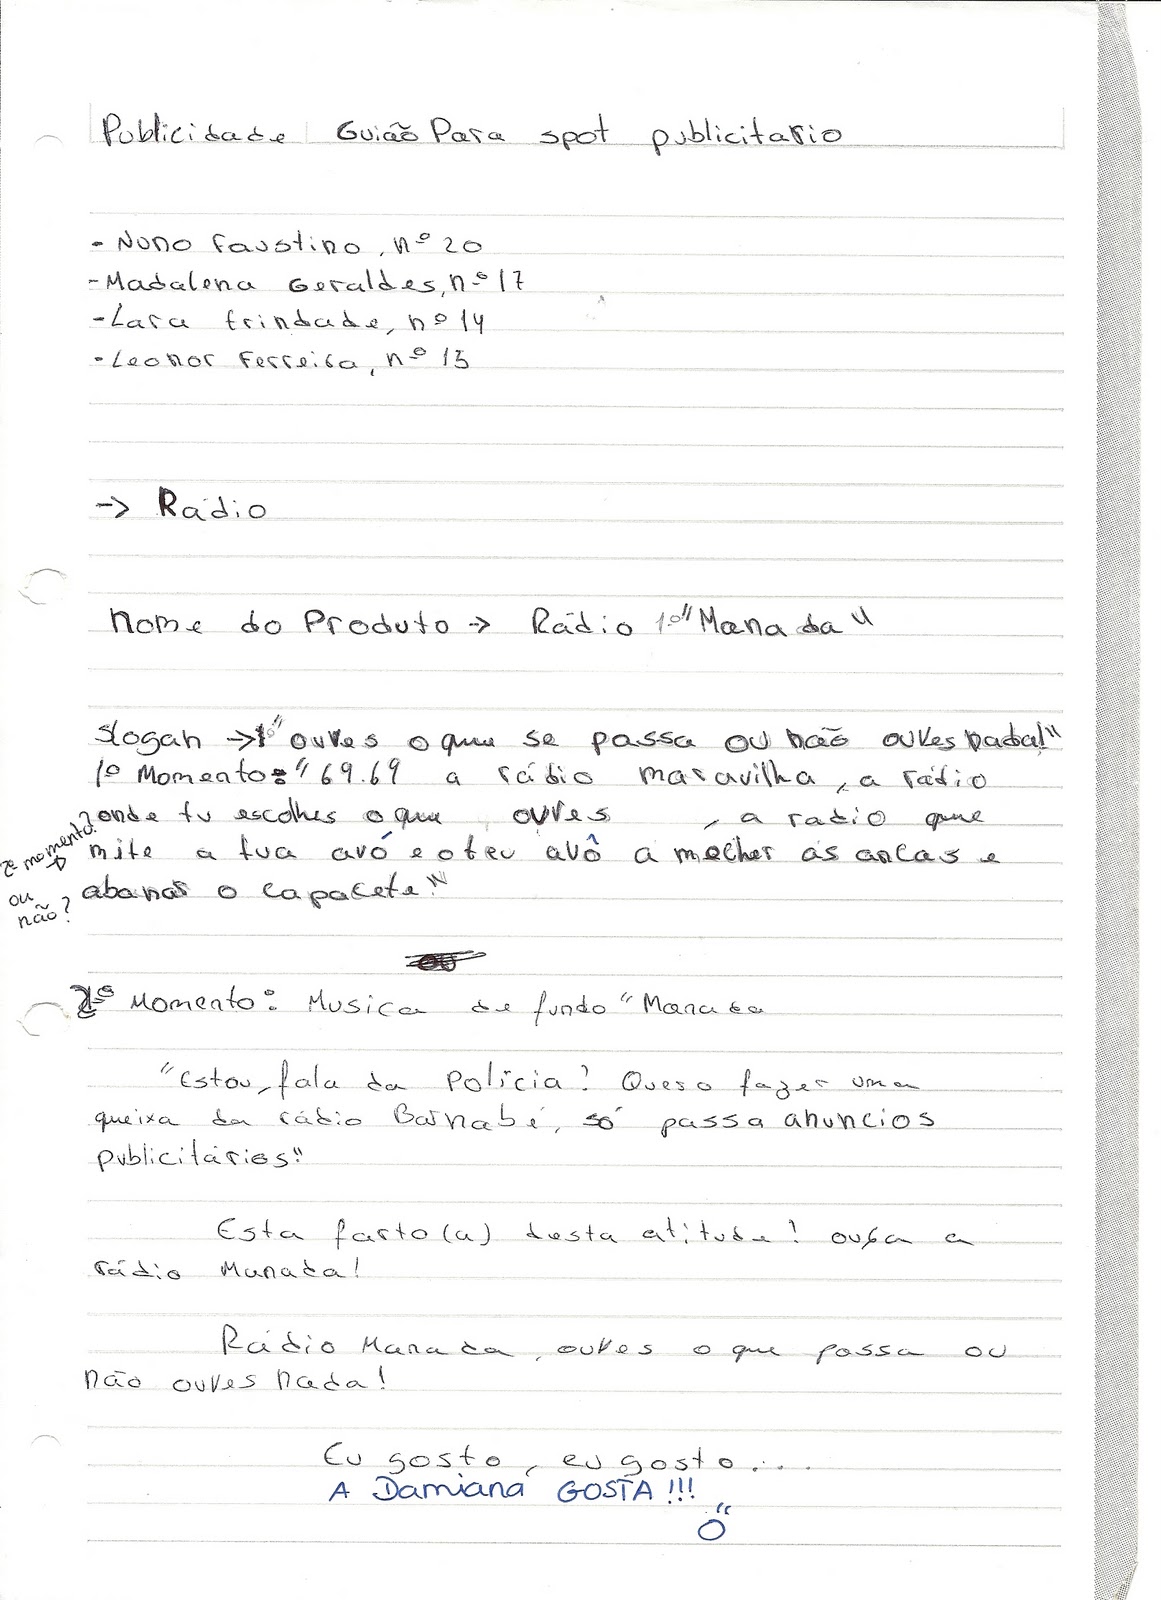 Publicidade Guião Para spot publicitario
- Nuno Faustino, nº 20
- Madalena Geraldes, nº 17
- Lara trindade, nº 14
- Leonor Ferreira, nº 15
-> Rádio
Nome do Produto -> Rádio "Manada"
Slogan -> "ouves o que se passa ou não ouves nada!"
1º Momento: "69.69 a rádio maravilha, a rádio
onde tu escolhes o que ouves, a radio que
mite a tua avó e o teu avô a mecher as ancas e
abanar o capacete!"
2º momento?
ou
não?
2º Momento: Musica de fundo "Manada
"Estou, fala da Policia? Quero fazer uma
queixa da rádio Barnabé, só passa anuncios
publicitários!"
Esta farto(a) desta atitude! ouça a
rádio Manada!
Rádio Manada, ouves o que passa ou
não ouves nada!
Eu gosto, eu gosto...
A Damiana GOSTA!!!